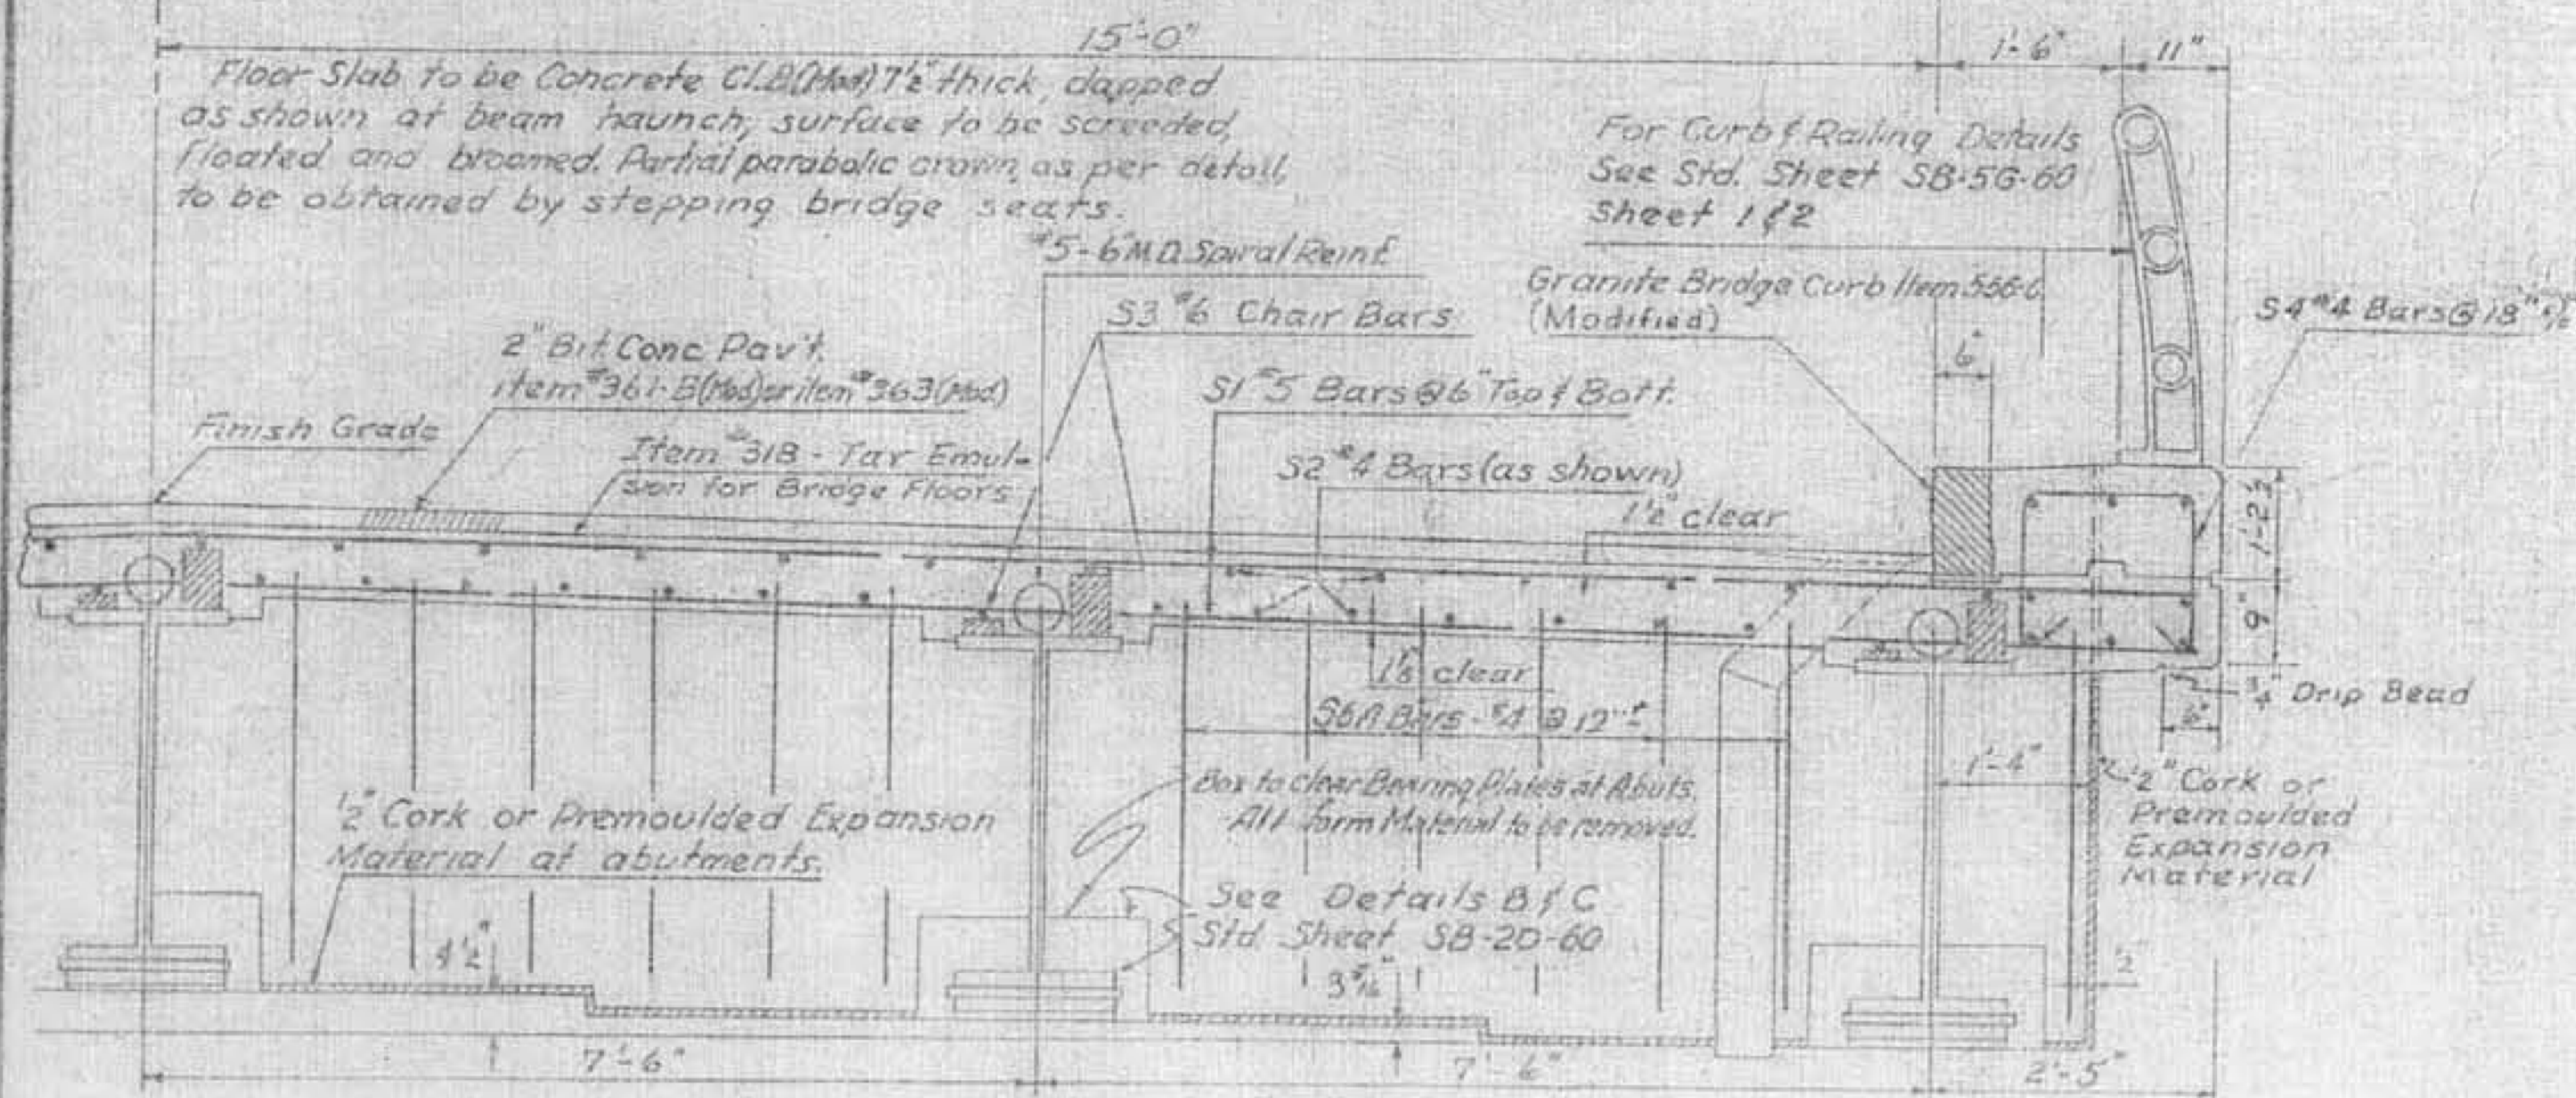 15'-0"
1'-6"
11"
Floor Slab to be Concrete Cl.B(Mod) 7½" thick, dapped
as shown at beam haunch, surface to be screeded,
floated and broomed. Partial parabolic crown, as per detail,
to be obtained by stepping bridge seats.
For Curb & Railing Details
See Std. Sheet SB-5G-60
Sheet 1 & 2
#5-6" M.D. Spiral Reinf.
Granite Bridge Curb Item 556-C
(Modified)
S3 #6 Chair Bars
S4 #4 Bars @ 18"
2" Bit. Conc. Pav't.
item #361-B(Mod) or item #363(Mod)
6"
S1 #5 Bars @ 6" Top & Bott.
Finish Grade
Item #318 - Tar Emul-
sion for Bridge Floors
S2 #4 Bars (as shown)
1½" clear
1'-2½"
9"
1⅛" clear
¾" Drip Bead
6"
Bars - #4 @ 12"±
1'-4"
½" Cork or
Premoulded
Expansion
Material
Box to clear Bearing Plates at Abuts.
All form Material to be removed.
½" Cork or Premoulded Expansion
Material at abutments.
See Details B & C
Std. Sheet SB-2D-60
4½"
2"
7'-6"
7'-6"
2'-5"